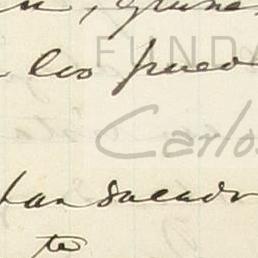 FUNDA
los pued
Carlos
han sacado
te